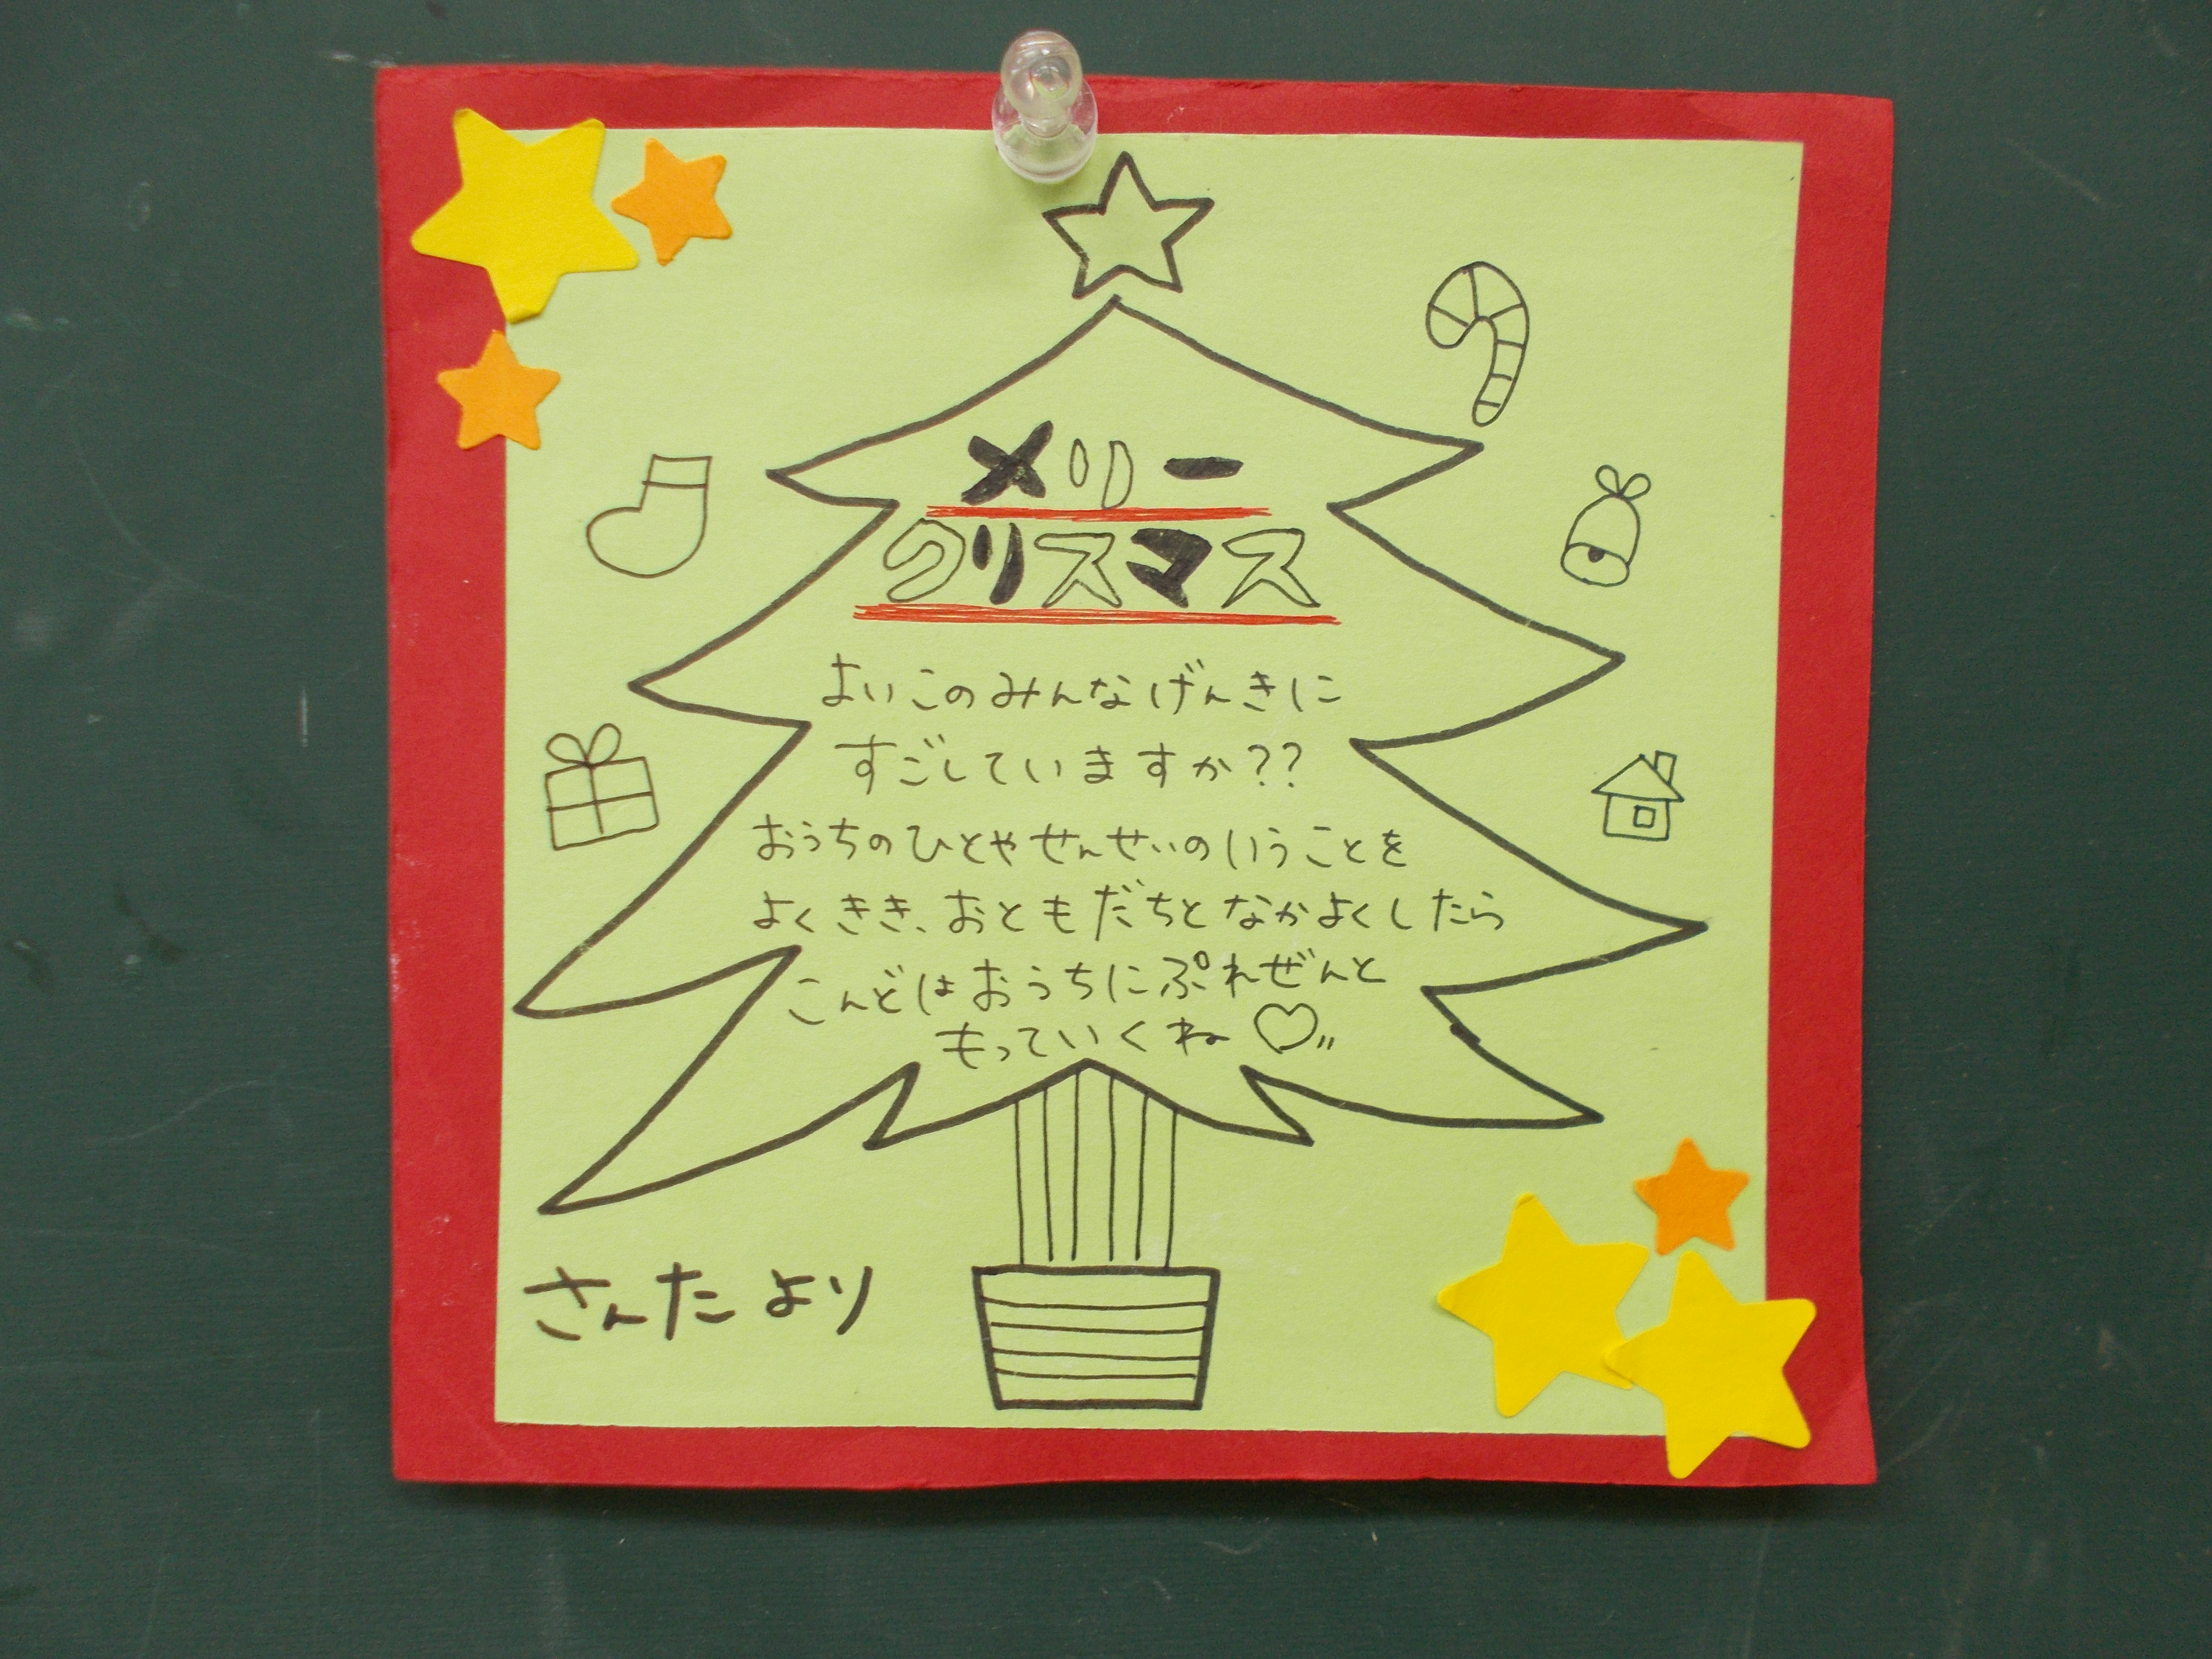 メリー
クリスマス
よいこのみんなげんきに
すごしていますか??
おうちのひとやせんせいのいうことを
よくきき、おともだちとなかよくしたら
こんどはおうちにぷれぜんと
もっていくね♡〃
さんたより